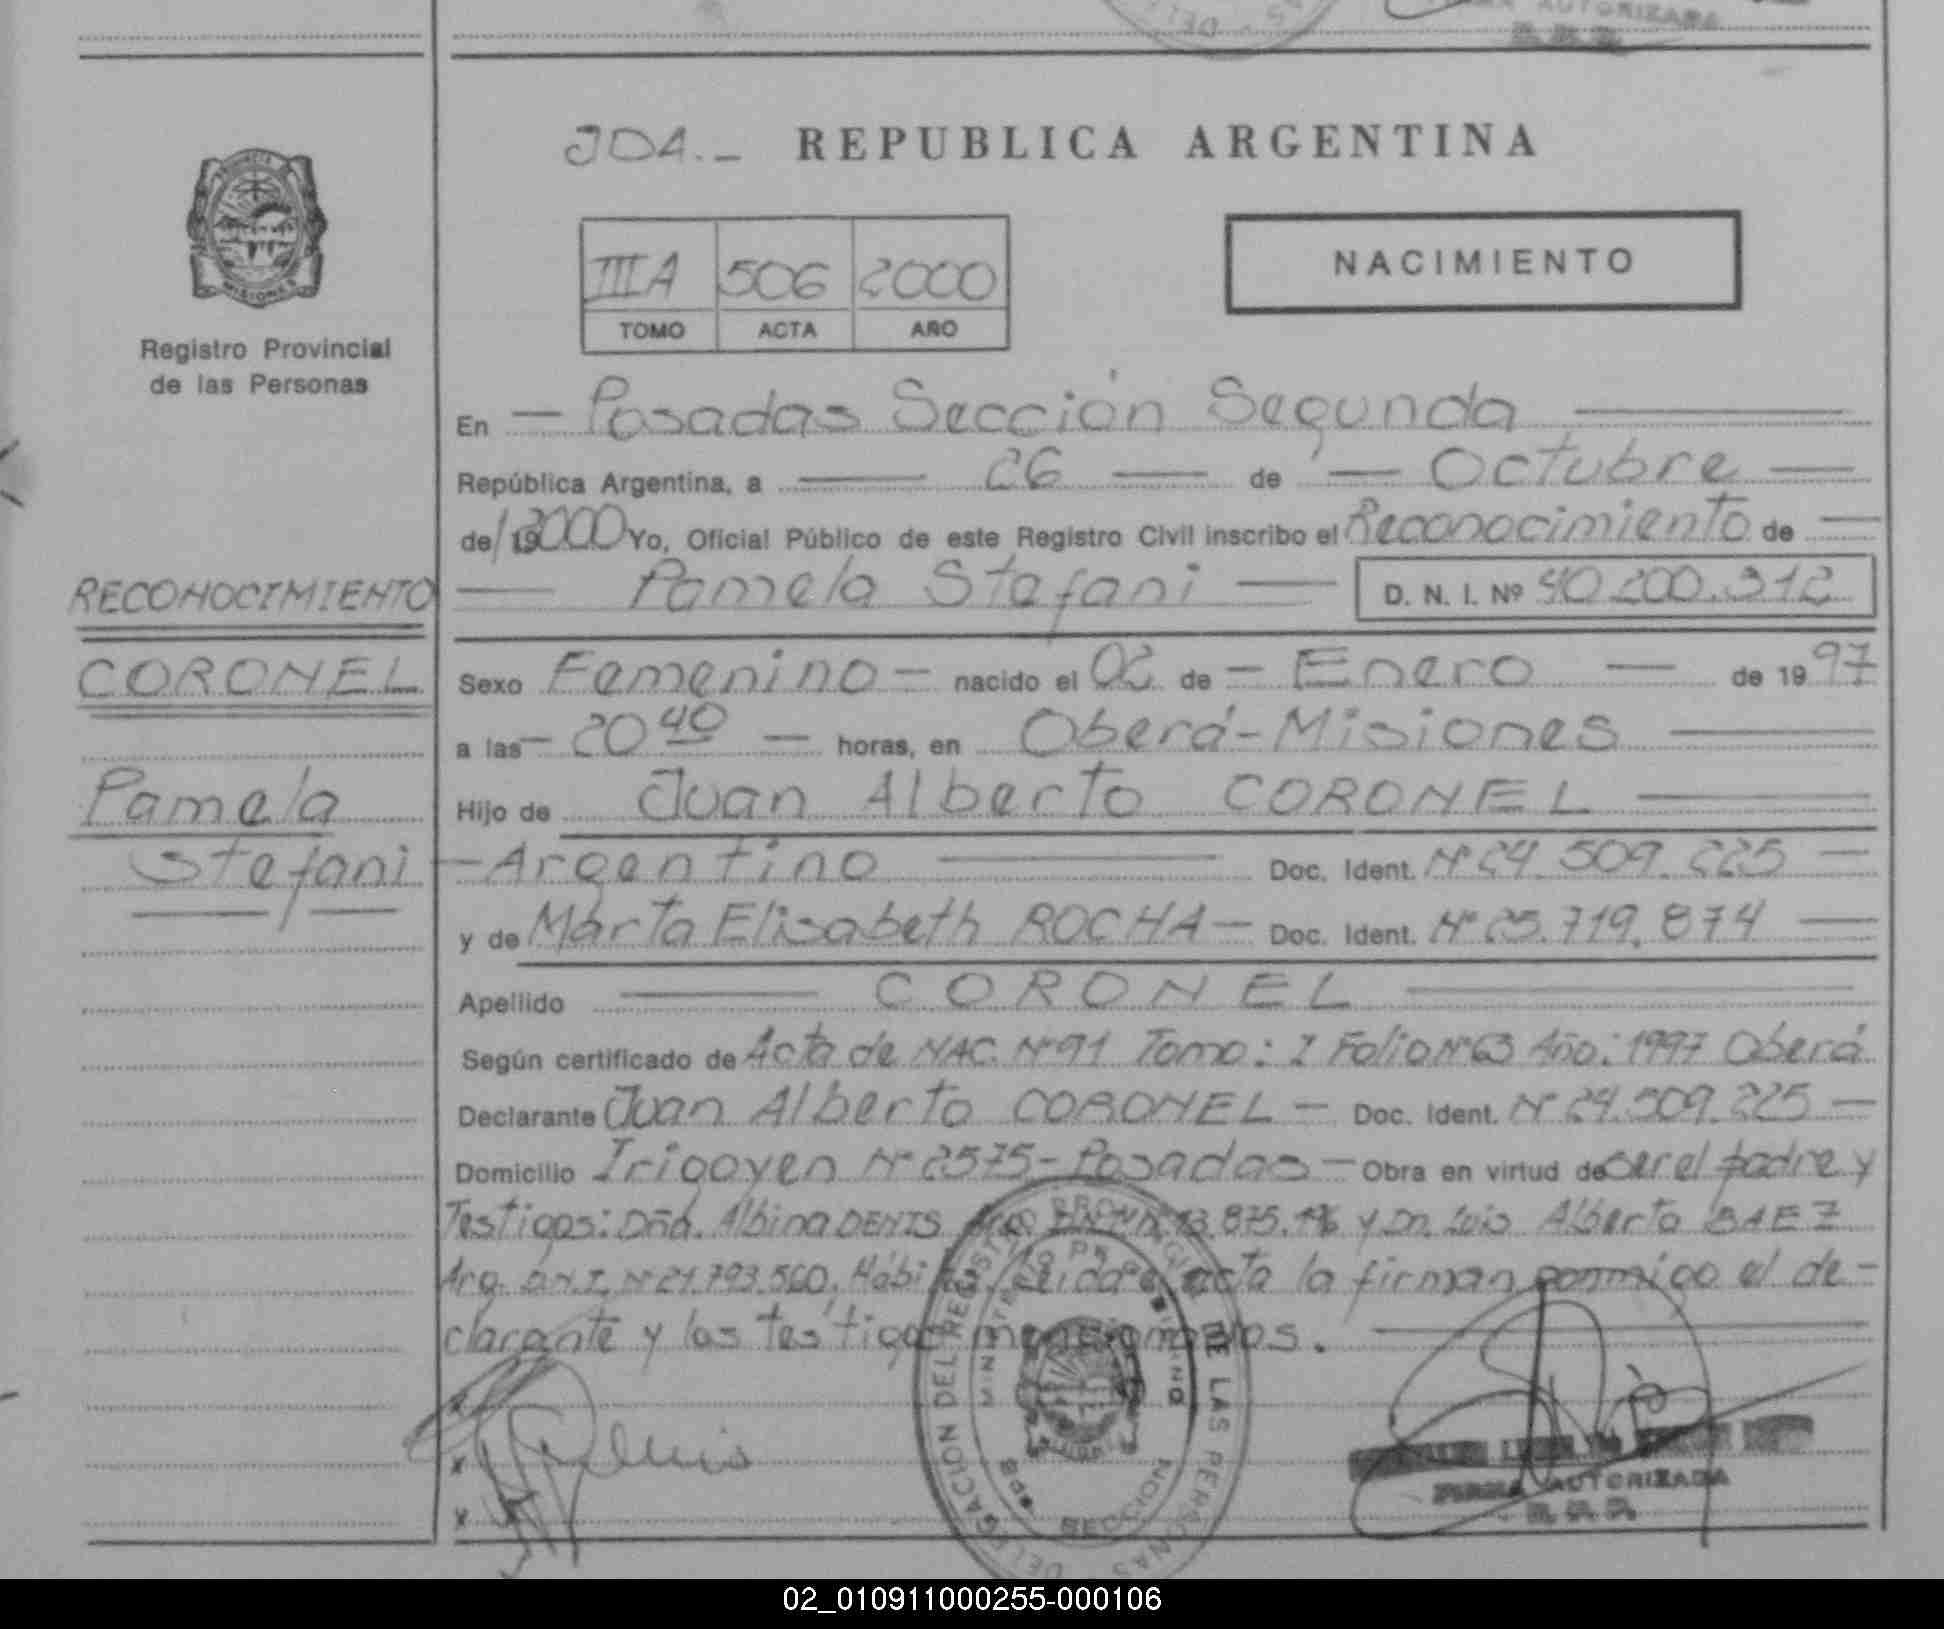 AUTORIZADA
JDA.- REPUBLICA ARGENTINA
MISIONES
Registro Provincial
de las Personas
IIIA 506 2000
TOMO ACTA AÑO
NACIMIENTO
En - Posadas Sección Segunda
República Argentina, a 26 de - Octubre
de 19 2000 Yo, Oficial Público de este Registro Civil inscribo el Reconocimiento de
Pamela Stefani D. N. I. Nº 40.200.312
RECONOCIMIENTO
CORONEL
Pamela
Stefani
Sexo Femenino - nacido el 02 de - Enero de 1997
a las - 20 40 - horas, en Oberá-Misiones
Hijo de Juan Alberto CORONEL
Argentino Doc. Ident. Nº 24.509.225
y de Marta Elisabeth ROCHA - Doc. Ident. Nº 25.719.874
Apellido CORONEL
Según certificado de Acta de NAC. Nº 91 Tomo: I Folio Nº 63 Año: 1997 Oberá
Declarante Juan Alberto CORONEL - Doc. Ident. Nº 24.509.225
Domicilio Irigoyen Nº 2575 - Posadas - Obra en virtud de ser el padre y
Testigos: Dña. Albina DENIS y Dn. Luis Alberto BAEZ
Arg. D.N.I. Nº 21.793.560. Leída acta la firman conmigo el de-
clarante y los testigos mencionados.
DELEGACION DEL REGISTRO PROVINCIAL DE LAS PERSONAS
SECCION
FIRMA AUTORIZADA
02_010911000255-000106